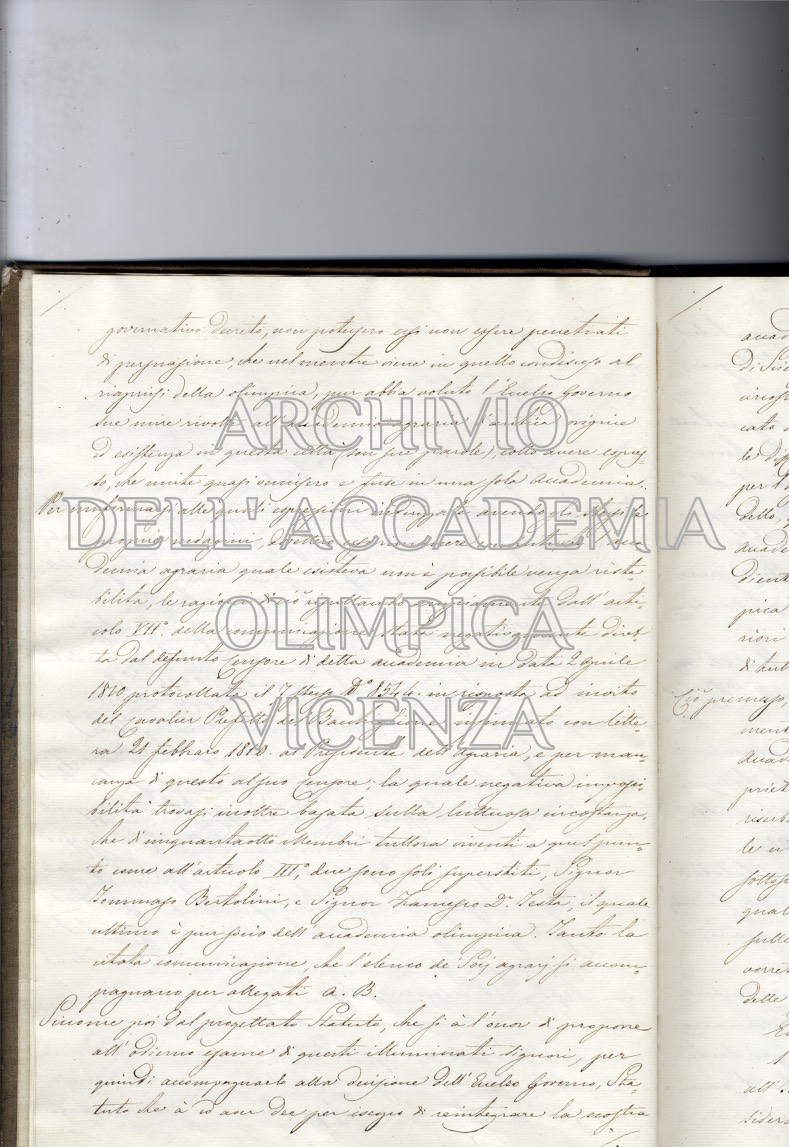 governativo decreto, non potessero essi non essere penetrati
di persuasione, che nel mentre viene in quello condisceso al
riaprirsi della olimpica, pur abbia voluto l'Eccelso Governo
sue mire rivolte all'accademia agraria d'antica origine
ed esistenza in questa città (son sue parole), volle avere espres-
so, che unite quasi venissero e fuse in una sola accademia.
Per uniformarsi alle quali espressioni
proprie indagini,
demia agraria quale esisteva non è possibile venga rista-
bilita, le ragioni di ciò risultando ampiamente dall'arti-
colo VII.° della comunicazione stata negativamente diret-
ta dal defunto Censore di detta accademia in data 2 aprile
1810 protocollata il 7 stesso N.° 8544 in risposta ad invito
del cavalier Prefetto del Bacchiglione con lette-
ra 21 febbraro 1810. al Presidente dell'agraria, e per man-
canza di questo al suo Censore; la quale negativa impossi-
bilità trovasi inoltre basata sulla luttuosa circostanza,
che di cinquantaotto Membri tuttora viventi a quel pun-
to come all'articolo III.°, due sono soli superstiti, Signor
Tommaso Bertolini, e Signor Francesco D.r Testa, il quale
ultimo è pur socio dell'accademia olimpica. Tanto la
citata comunicazione, che l'elenco de' Socj agrarj si accom-
pagnano per allegati A. B.
Siccome poi dal progettato Statuto, che si à l'onor di proporre
all'odierno esame di questi illuminati Signori, per
quindi accompagnarlo alla decisione dell'Eccelso Governo, Sta-
tuto che à ed aver dee per iscopo di reintegrare la nostra
ARCHIVIO
DELL'ACCADEMIA
OLIMPICA
VICENZA
di tut
Ciò premesso,
delle